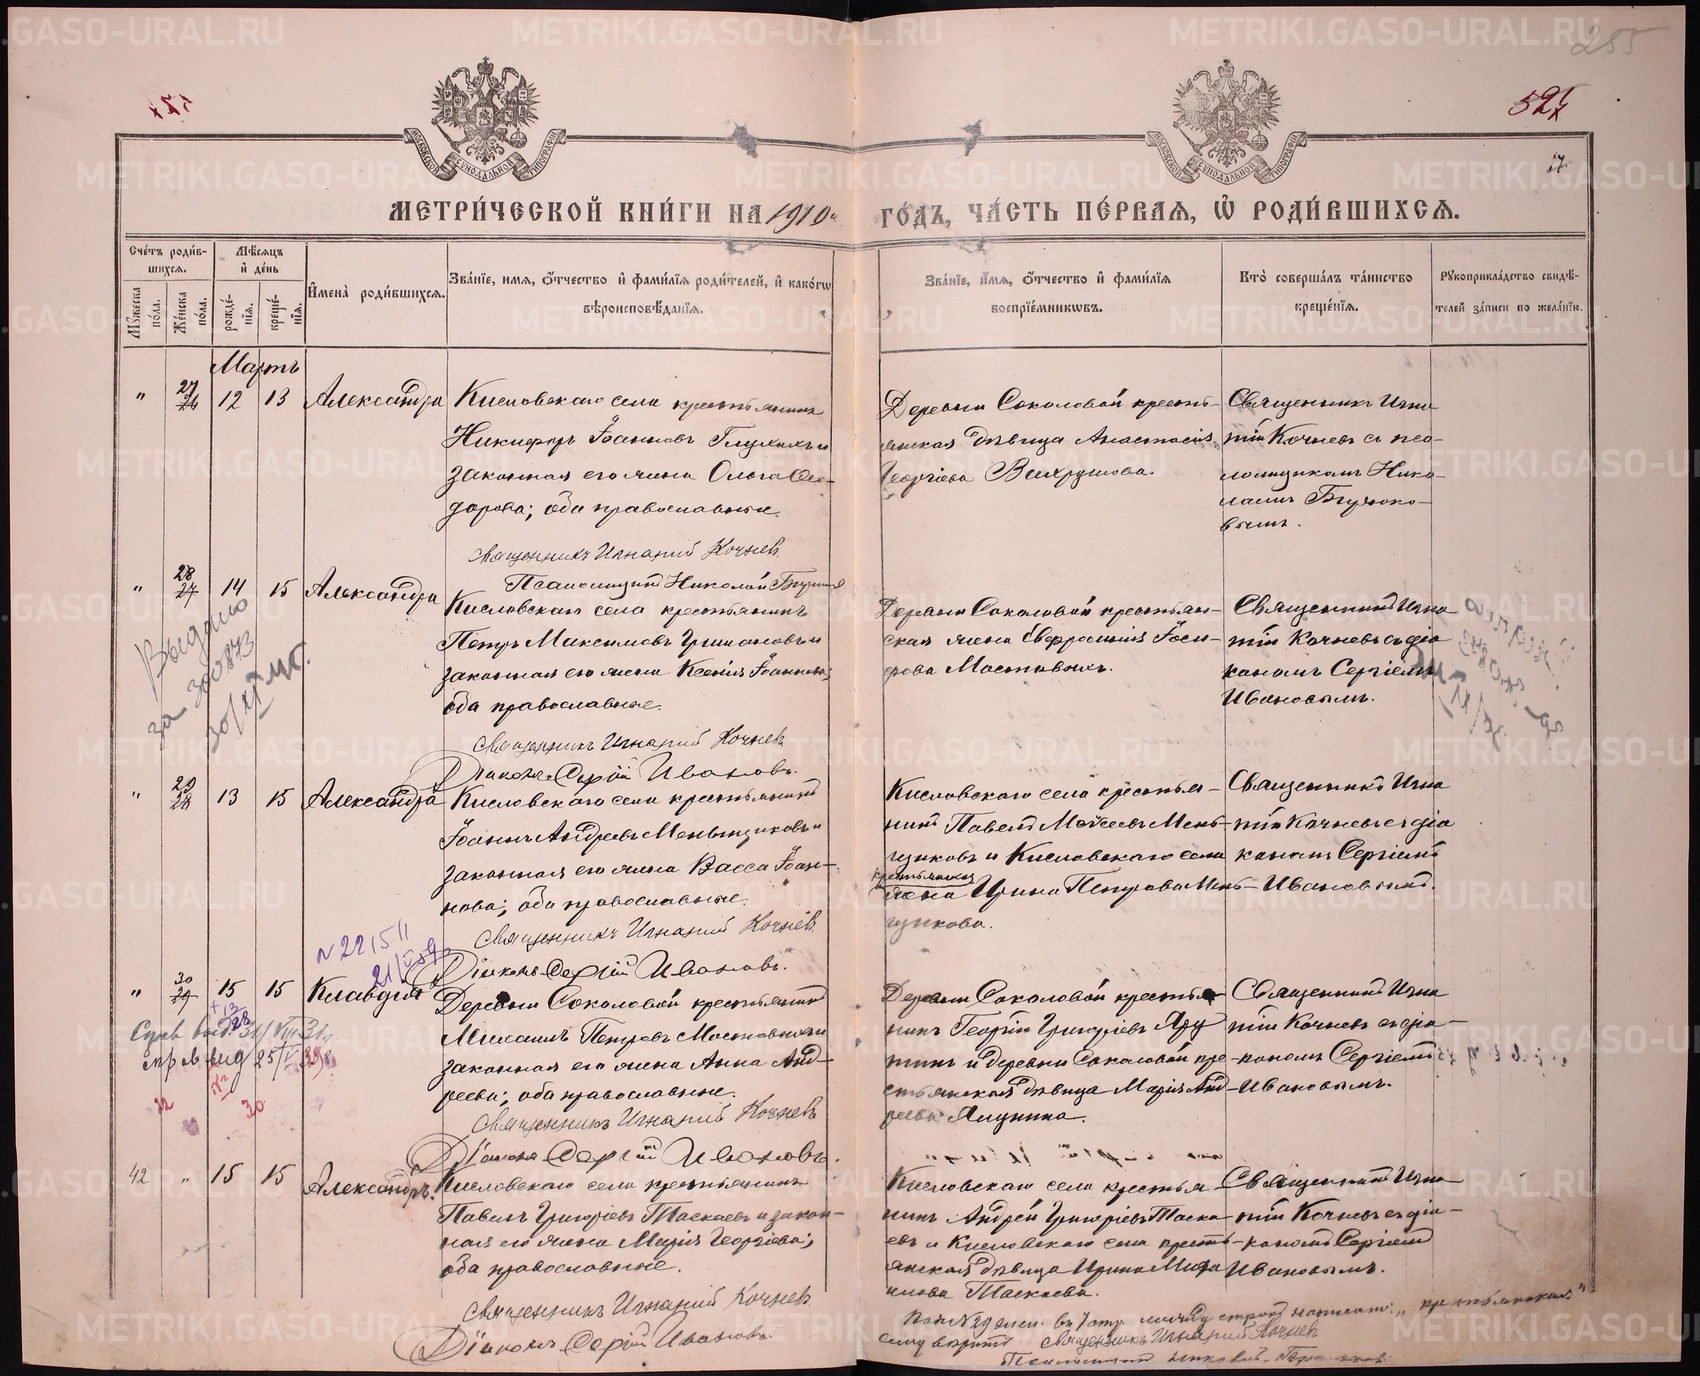 255
521
17
МЕТРИ́ЧЕСКОЙ КНИ́ГИ НА 1910 й ГО́ДЪ, ЧА́СТЬ ПЕ́РВАЯ, Ѽ РОДИ́ВШИХСЯ.
Сче́тъ роди́в-
шихся.
Мѣ́сяцъ
и҆ де́нь
Мꙋ́жеска по́ла.
Же́нска по́ла.
рожде́нїя.
креще́нїя.
И҆мена̀ роди́вшихся.
Зва́нїе, имя, ѻ҆́тчество и҆ фами́лїя роди́телей, и҆ како́гѡ
вѣроисповѣ́данїя.
Зва́нїе, и҆́мя, ѻ҆́тчество и҆ фами́лїя
воспрїе́мникѡвъ.
Кто̀ соверша́лъ та́инство
креще́нїя.
Рꙋкоприкла́дство свидѣ́-
телей за́писи по жела́нїю.
Мартъ
" 27 26 12 13 Александра
Кисловскаго села крестьянинъ
Никифоръ Іоанновъ Глухихъ и
законная его жена Ольга Ѳео-
дорова; оба православные.
Священникъ Игнатій Кочнев
Псаломщикъ Николай
Деревни Соколовой кресть-
янская дѣвица Анастасія
Георгіева Вахрушова.
Священникъ Игна-
тій Кочневъ съ пса-
ломщикомъ Нико-
лаемъ
вымъ.
" 28 27 14 15 Александра
Кисловскаго села крестьянинъ
Петръ Максимовъ и
законная его жена Ксенія Іоаннова;
оба православные.
Священникъ Игнатій Кочнев
Діаконъ Сергій Ивановъ.
Деревни Соколовой крестьян-
ская жена Евфросинія Іоси-
фова Мостовыхъ.
Священникъ Игна-
тій Кочневъ съ діа-
кономъ Сергіемъ
Ивановымъ.
Выдано
за 300873
" 29 28 13 15 Александра
Кисловскаго села крестьянинъ
Іоаннъ Андреевъ Меньщиковъ и
законная его жена Васса Іоан-
нова; оба православные.
Священникъ Игнатій Кочнев
Діаконъ Сергій Ивановъ.
Кисловскаго села крестья-
нинъ Павелъ Моисеевъ Мень-
щиковъ и Кисловскаго села
крестьянская
жена Ирина Петрова Мень-
щикова.
Священникъ Игна-
тій Кочневъ съ діа-
кономъ Сергіемъ
Ивановымъ.
N 221511
" 30 29 15 15 Клавдія
Деревни Соколовой крестьянинъ
Михаилъ Петровъ Мостовыхъ и
законная его жена Анна Анд-
реева; оба православные.
Священникъ Игнатій Кочнев
Діаконъ Сергій Ивановъ.
Деревни Соколовой крестья-
нинъ Георгій Григоріевъ
и деревни Соколовой кре-
стьянская дѣвица Марія Анд-
реева
Священникъ Игна-
тій Кочневъ съ діа-
кономъ Сергіемъ
Ивановымъ.
42 " 15 15 Александръ.
Кисловскаго села крестьянинъ
Павелъ Григоріевъ Таскаевъ и закон-
ная его жена Марія Георгіева;
оба православные.
Священникъ Игнатій Кочнев.
Діаконъ Сергій Ивановъ
Кисловскаго села крестья-
нинъ Андрей Григоріевъ Таска-
евъ и Кисловскаго села кресть-
янская дѣвица Ирина Миха-
илова Таскаева.
Священникъ Игна-
тій Кочневъ съ діа-
кономъ Сергіемъ
Ивановымъ.
между строкъ написано: „крестьянская"
сему вѣрить Священникъ Игнатий Кочнев
METRIKI.GASO-URAL.RU